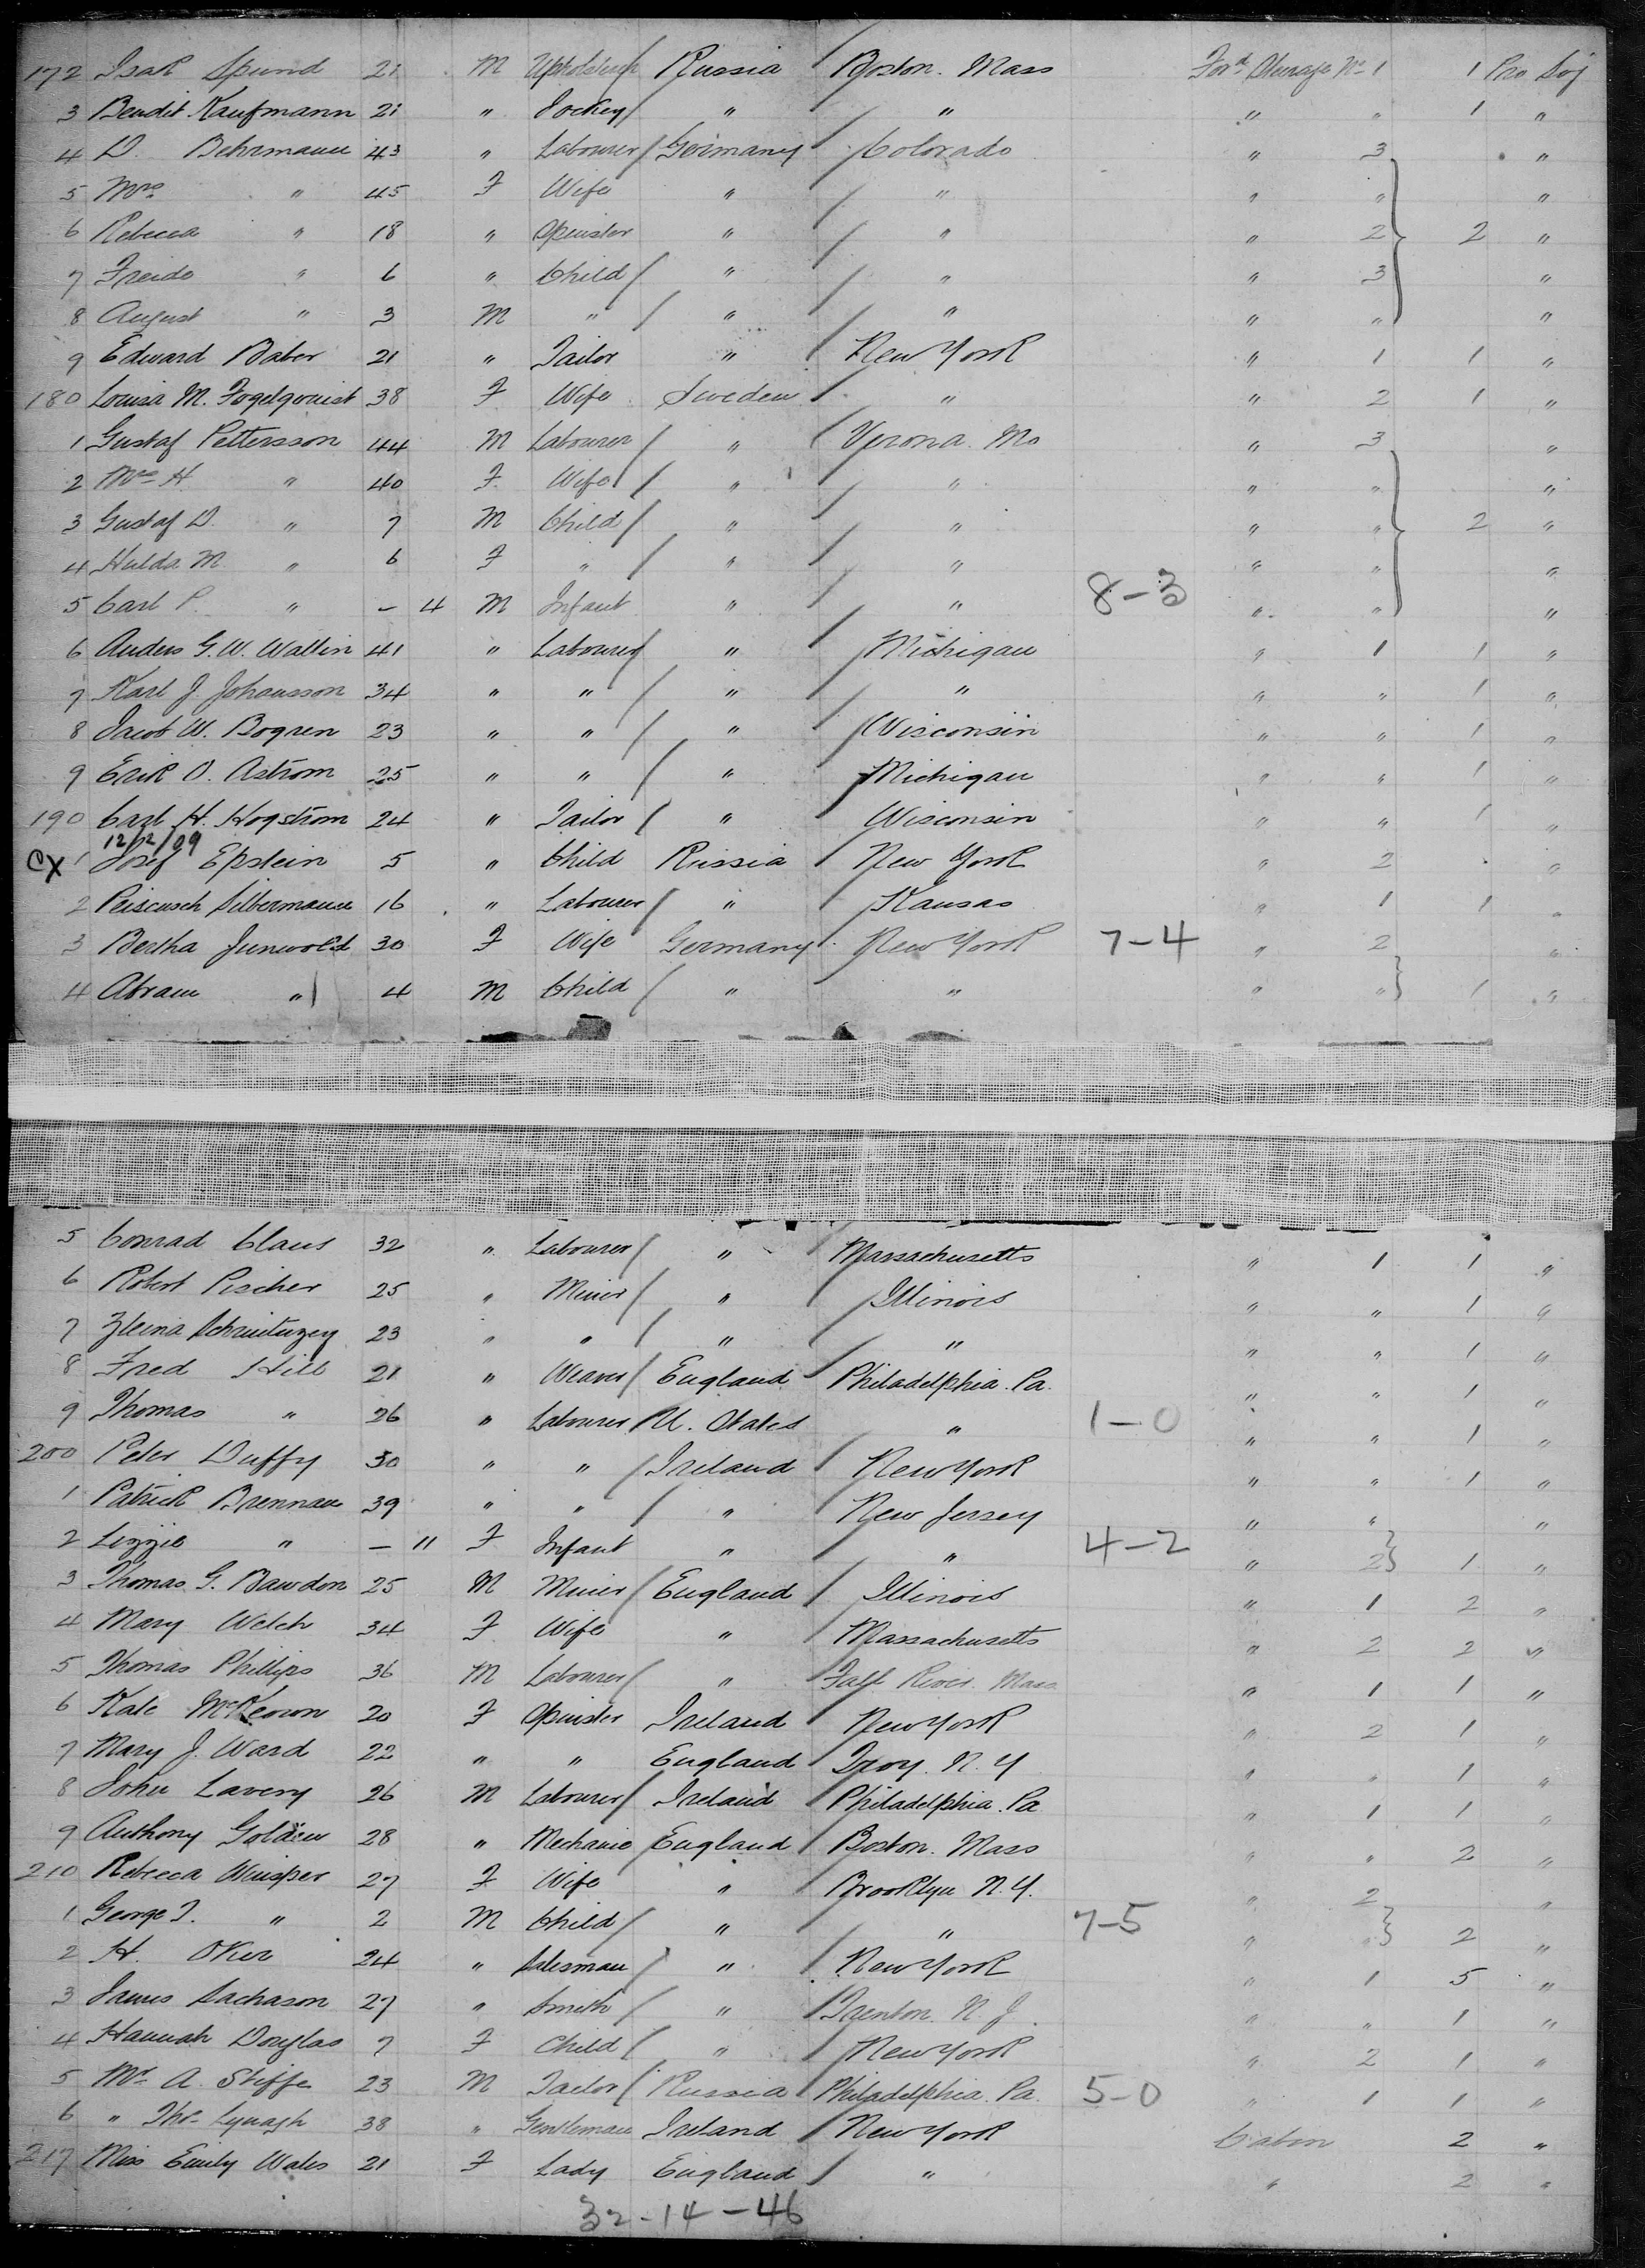 172 Isak Spund 21 M Upholsterer Russia Boston. Mass Forᵈ Steerage Nº 1 1 Pro Soj
3 Bendit Kaufmann 21 " Jockey " " " " 1 "
4 D. Behrmann 43 " Labourer Germany Colorado " 3 "
5 Mrs " 45 F Wife " " " " "
6 Rebecca " 18 " Spinster " " " 2 2 "
7 Freido " 6 " Child " " " 3 "
8 August " 3 M " " " " " "
9 Edward Baber 21 " Tailor " New York " 1 1 "
180 Louisa M. Fogelqouist 38 F Wife Sweden " " 2 1 "
1 Gustaf Pettersson 44 M Labourer " Verona. Mo " 3 "
2 Mrs H. " 40 F Wife " " " " "
3 Gustaf D. " 7 M Child " " " " 2 "
4 Hulda M. " 6 F " " " " " "
5 Carl P. " – 4 M Infant " " 8-3 " " "
6 Anders G. W. Wallin 41 " Labourer " Michigan " 1 1 "
7 Karl J. Johansson 34 " " " " " " 1 "
8 Jacob W. Bogren 23 " " " Wisconsin " " 1 "
9 Erik O. Astrom 25 " " " Michigan " " 1 "
190 Carl H. Hogstrom 24 " Tailor " Wisconsin " " 1 "
12/2/09
CX 1 Josef Epstein 5 " Child Russia New York " 2 "
2 Peiscusch Silbermann 16 " Labourer " Kansas " 1 1 "
3 Bertha Junwold 30 F Wife Germany New York 7-4 " 2 "
4 Abram " 4 M Child " " " " 1 "
5 Conrad Claus 32 " Labourer " Massachusetts " 1 1 "
6 Robert Pischer 25 " Miner " Illinois " " 1 "
7 23 " " " " " " 1 "
8 Fred Hill 21 " Weaver England Philadelphia. Pa. " " 1 "
9 Thomas " 26 " Labourer U. States " 1-0 " " 1 "
200 Peter Duffy 30 " " Ireland New York " " 1 "
1 Patrick Brennan 39 " " " New Jersey " " "
2 Lizzie " – 11 F Infant " " 4-2 " 2 1 "
3 Thomas G. Bawdon 25 M Miner England Illinois " 1 2 "
4 Mary Welch 34 F Wife " Massachusetts " 2 2 "
5 Thomas Phillips 36 M Labourer " Fall River. Mass " 1 1 "
6 Kate McKeown 20 F Spinster Ireland New York " 2 1 "
7 Mary J. Ward 22 " " England Troy. N. Y " " 1 "
8 John Lavery 26 M Labourer Ireland Philadelphia. Pa " 1 1 "
9 Anthony Golden 28 " Mechanic England Boston. Mass " " 2 "
210 Rebecca Winsper 27 F Wife " Brooklyn N. Y. " 2 "
1 George T. " 2 M Child " " 7-5 " " 2 "
2 H. Oker 24 " Salesman " New York " 1 5 "
3 James Sachason 27 " Smith " Trenton. N J. " " 1 "
4 Hannah Douglas 7 F Child " New York " 2 1 "
5 Mr A. Stiffe 23 M Tailor Russia Philadelphia. Pa. 5-0 " 1 1 "
6 " Thos Lynagh 38 " Gentleman Ireland New York Cabin 2 "
217 Miss Emily Wales 21 F Lady England " " 2 "
32-14-46